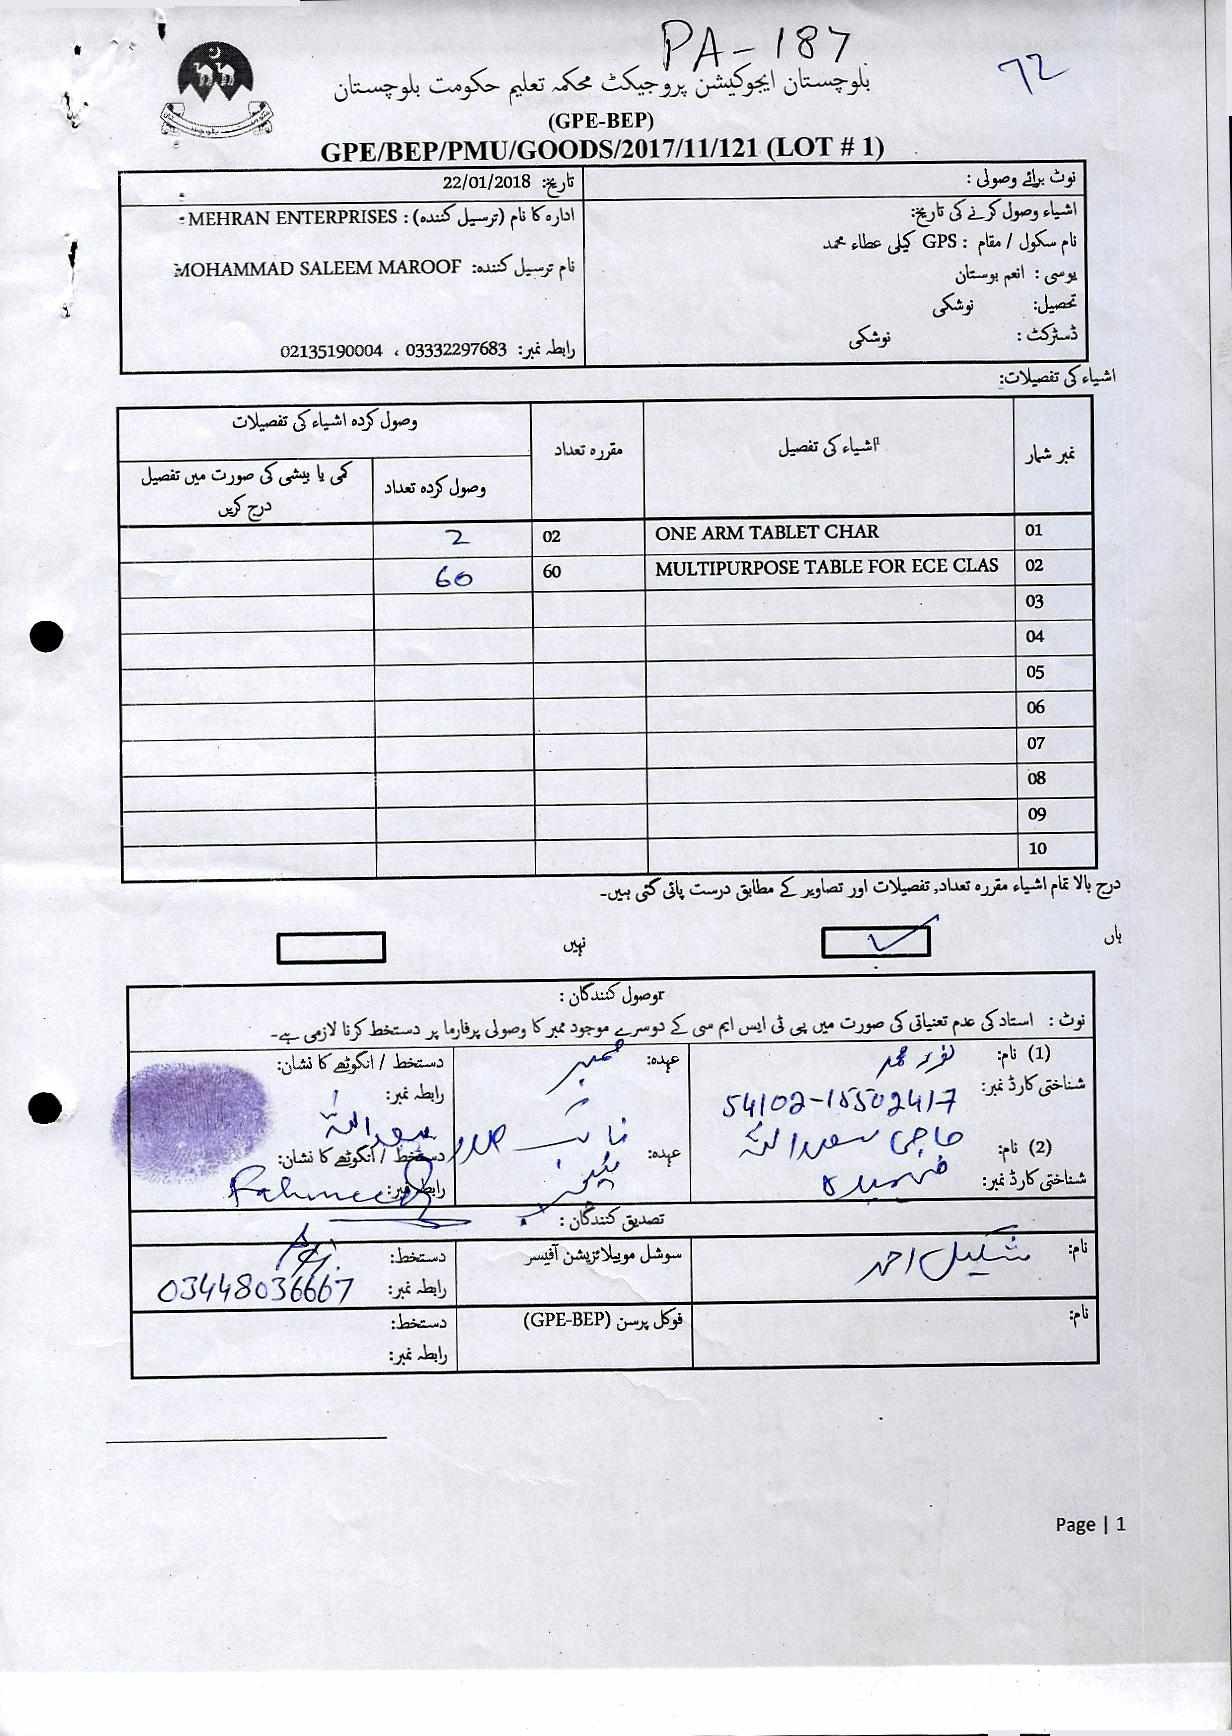 PA-187
72
بلوچستان ایجوکیشن پروجیکٹ محکمہ تعلیم حکومت بلوچستان
(GPE-BEP)
GPE/BEP/PMU/GOODS/2017/11/121 (LOT # 1)
نوٹ برائے وصولی :
تاریخ: 22/01/2018
اشیاء وصول کرنے کی تاریخ:
ادارہ کا نام (ترسیل کنندہ) : MEHRAN ENTERPRISES
نام سکول / مقام : GPS کیلی عطاء محمد
نام ترسیل کنندہ: MOHAMMAD SALEEM MAROOF
یوسی : انعم بوستان
تحصیل: نوشکی
ڈسٹرکٹ : نوشکی
رابطہ نمبر: 03332297683 ، 02135190004
اشیاء کی تفصیلات:
نمبر شمار اشیاء کی تفصیل مقررہ تعداد وصول کردہ اشیاء کی تفصیلات
وصول کردہ تعداد کمی یا بیشی کی صورت میں تفصیل درج کریں
01 ONE ARM TABLET CHAR 02 2
02 MULTIPURPOSE TABLE FOR ECE CLAS 60 60
03
04
05
06
07
08
09
10
درج بالا تمام اشیاء مقررہ تعداد, تفصیلات اور تصاویر کے مطابق درست پائی گئی ہیں۔
ہاں نہیں
وصول کنندگان :
نوٹ : استاد کی عدم تعنیاتی کی صورت میں پی ٹی ایس ایم سی کے دوسرے موجود ممبر کا وصولی پرفارما پر دستخط کرنا لازمی ہے۔
(1) نام: عہدہ: ممبر دستخط / انگوٹھے کا نشان:
شناختی کارڈ نمبر: 54102-1550241-7 رابطہ نمبر:
(2) نام: حاجی سعد اللہ عہدہ: نائب صدر دستخط / انگوٹھے کا نشان: سعد اللہ
شناختی کارڈ نمبر: رابطہ نمبر:
تصدیق کنندگان :
نام: شکیل احمد سوشل موبیلائزیشن آفیسر دستخط:
رابطہ نمبر: 03448036667
نام: فوکل پرسن (GPE-BEP) دستخط:
رابطہ نمبر:
Page | 1